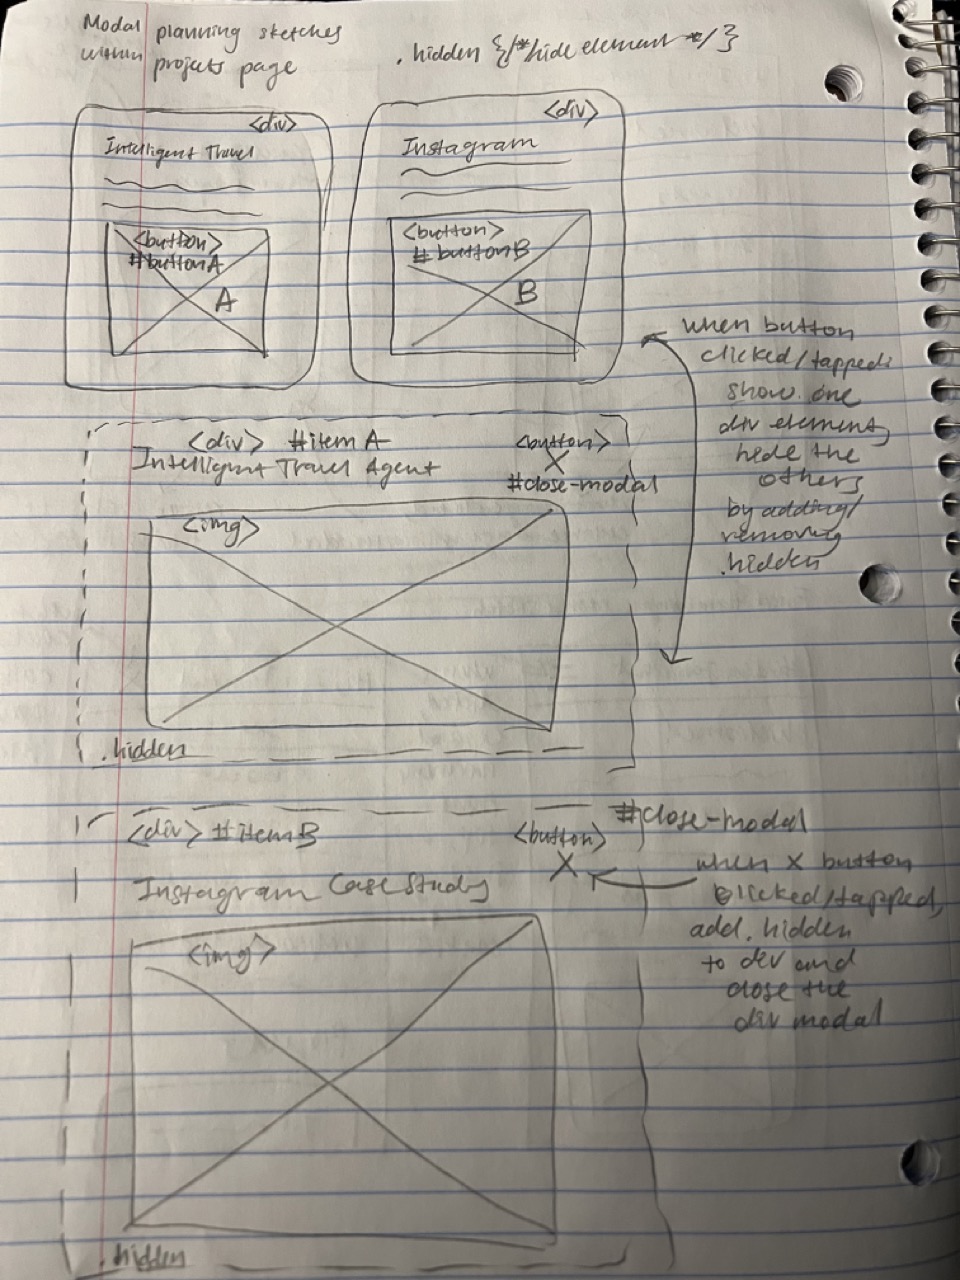 Modal planning sketches
within projects page
.hidden {/*hide element */}
<div>
Intelligent Travel
<button>
#buttonA
A
<div>
Instagram
<button>
#buttonB
B
when button
clicked/tapped:
show one
div element,
hide the
others
by adding/
removing
.hidden
<div> #itemA
Intelligent Travel Agent
<button>
X
#close-modal
<img>
.hidden
<div> #itemB
<button>
#close-modal
X
Instagram Case Study
<img>
when X button
clicked/tapped,
add .hidden
to dev and
close the
div modal
.hidden